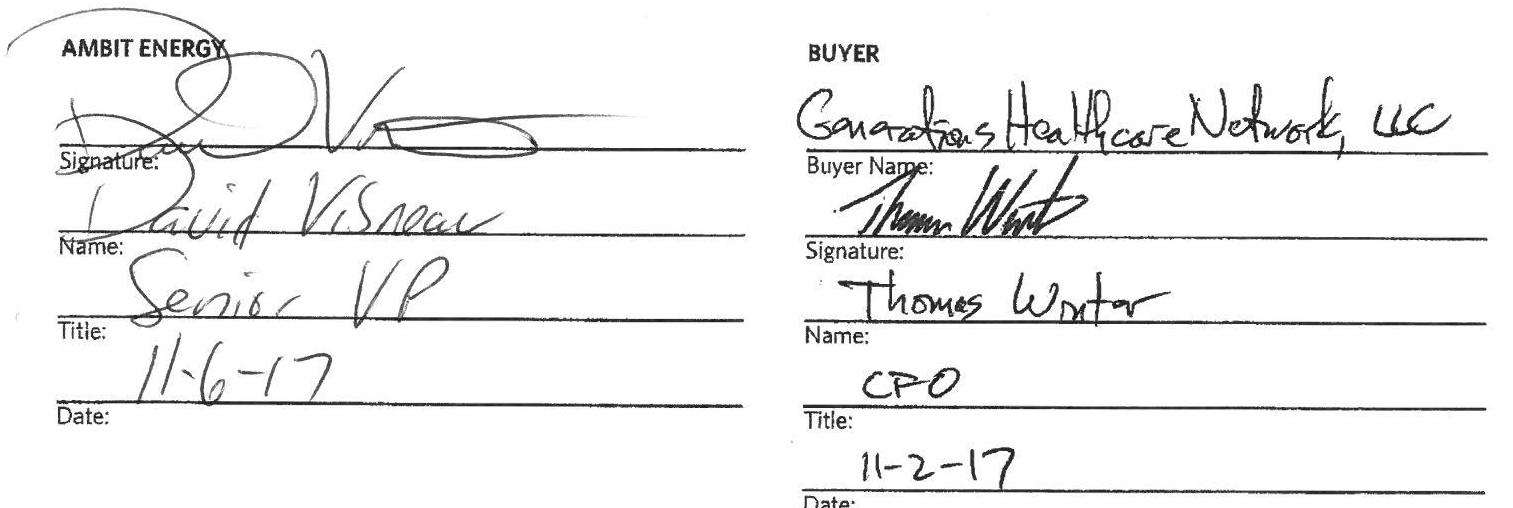 AMBIT ENERGY
Signature:
David Visneau
Name:
Senior VP
Title:
11-6-17
Date:
BUYER
Generations Healthcare Network, LLC
Buyer Name:
Signature:
Thomas Winter
Name:
CFO
Title:
11-2-17
Date: